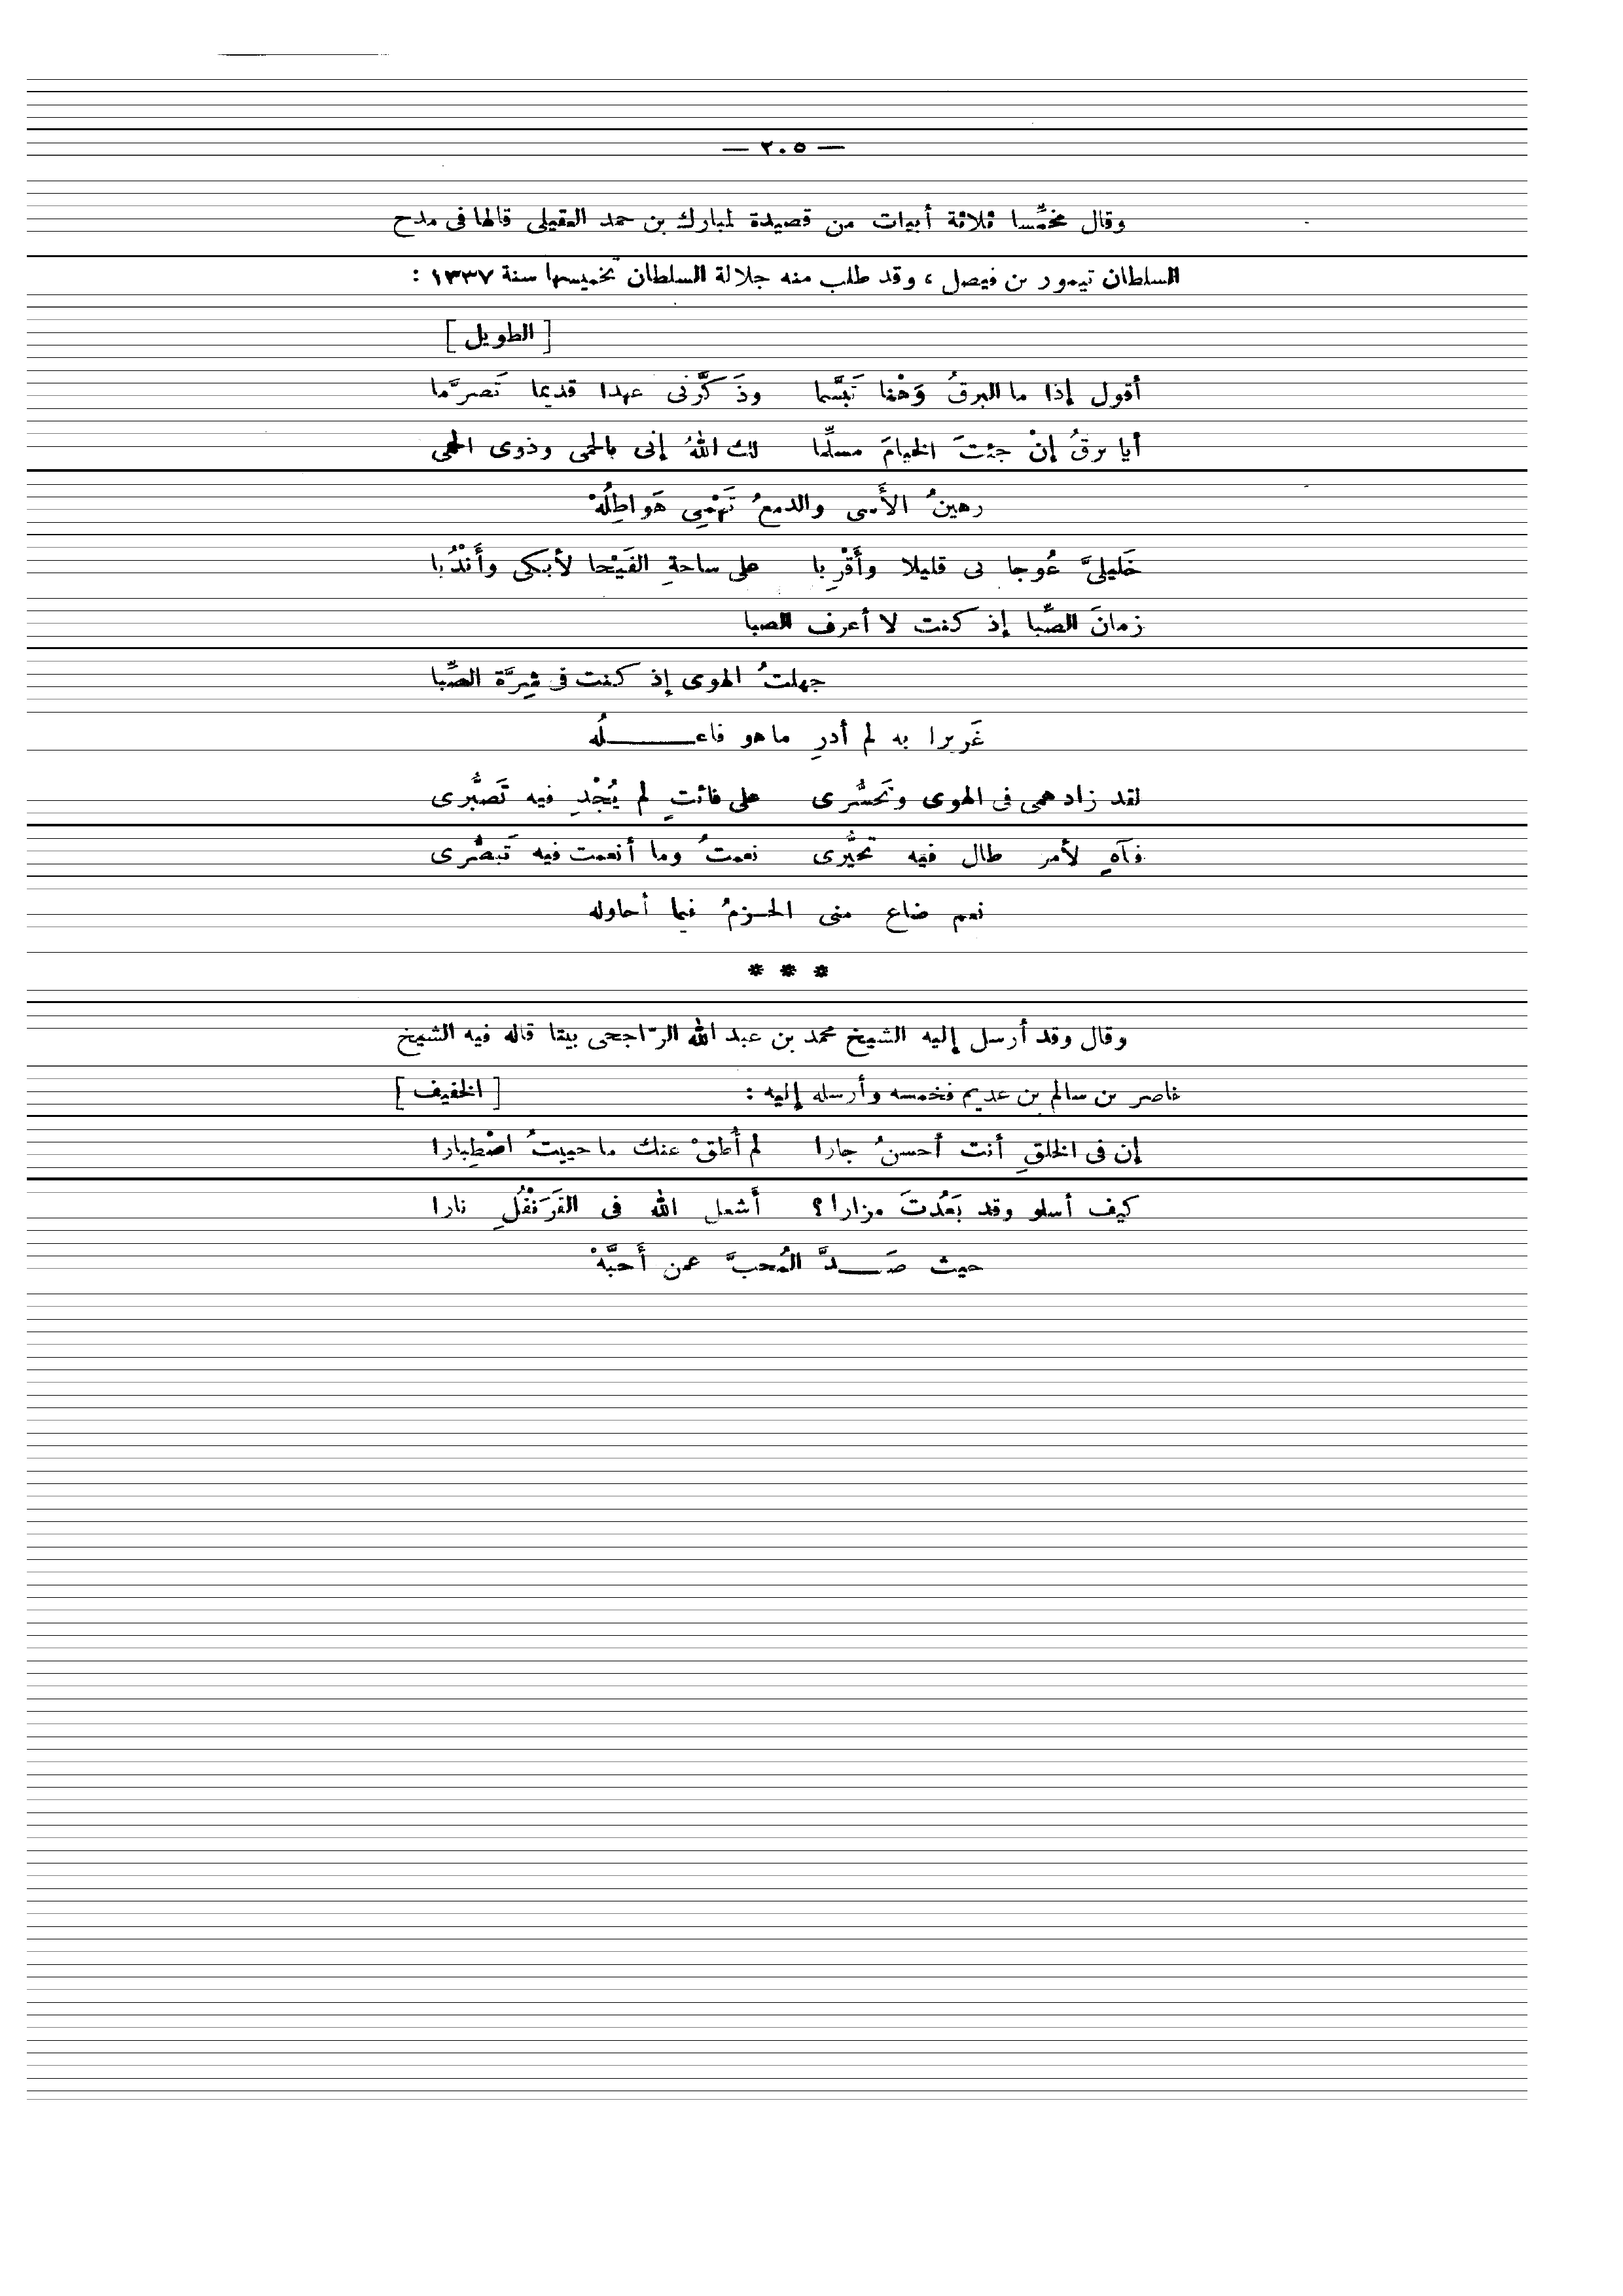 — ٢٠٥ —
وقال مخمِّسا ثلاثة أبيات من قصيدة لمبارك بن حمد العقيلى قالها فى مدح
السلطان تيمور بن فيصل ، وقد طلب منه جلالة السلطان تخميسها سنة ١٣٣٧ :
[ الطويل ]
أقول إذا ما البرقُ وَهْنا تَبَسَّما وذَكَّرنى عهدا قديما تَصرَّما
أيا برقُ إنْ جئتَ الخيامَ مسلِّما لك اللهُ إنى بالحمى وذوى الحمى
رهينُ الأَسى والدمعُ تَهْمِى هَواطِلُهْ
خَليلىَّ عُوجا بى قليلا وأَقْرِبا على ساحةِ الفَيْحا لأبكى وأَنْدُبا
زمانَ الصِّبا إذ كنت لا أعرف الصبا
جهلتُ الهوى إذ كنت فى شِرَّة الصِّبا
غَريرا به لم أدرِ ما هو فاعلُه
لقد زاد همى فى الهوى وتَحسُّرى على فائتٍ لم يُجْدِ فيه تَصبُّرى
فآهٍ لأمر طال فيه تحيُّرى نعمتُ وما أنعمت فيه تَبصُّرى
نعم ضاع منى الحزمُ فيما أحاوله
* * *
وقال وقد أرسل إليه الشيخ محمد بن عبد الله الرّاجحى بيتا قاله فيه الشيخ
ناصر بن سالم بن عديم فخمسه وأرسله إليه : [ الخفيف ]
إن فى الخلقِ أنت أحسنُ جارا لم أُطقْ عنك ما حييتُ اصْطِبارا
كيف أسلو وقد بَعُدتَ مزارا؟ أَشعل الله فى القَرَنْفُلِ نارا
حيث صَدَّ المُحبَّ عمن أَحبَّهْ